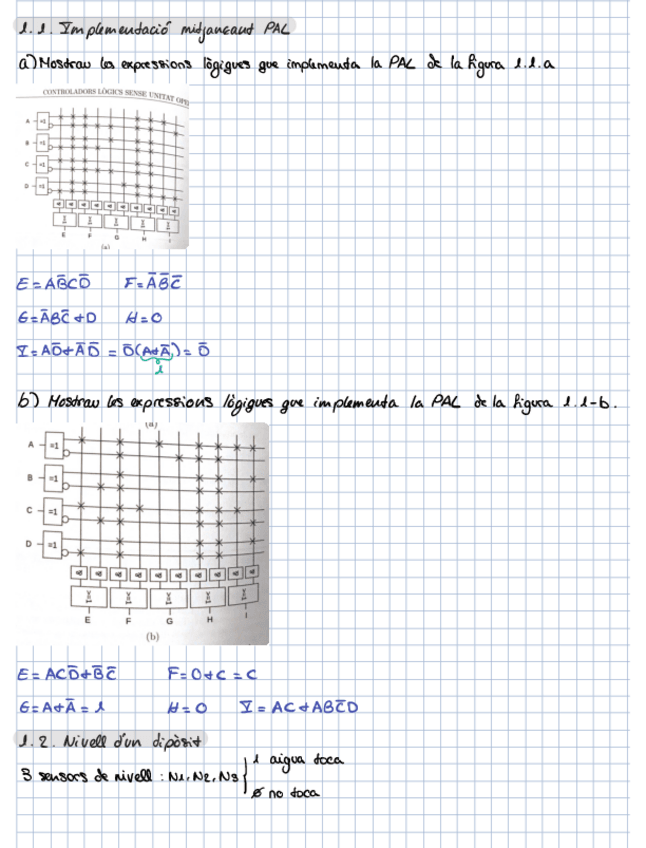 1.1. Implementació mitjançant PAL
a) Mostrau les expressions lògiques que implementa la PAL de la figura 1.1.a
CONTROLADORS LÒGICS SENSE UNITAT OPE
A =1
B =1
C =1
D =1
& & & & & & & & & &
≥1 ≥1 ≥1 ≥1 ≥1
E F G H I
(a)
E = AB̅CD̅ F = A̅B̅C̅
G = A̅BC̅ + D H = 0
I = AD̅ + A̅D̅ = D̅(A+A̅) = D̅
1
b) Mostrau les expressions lògiques que implementa la PAL de la figura 1.1-b.
(a)
A =1
B =1
C =1
D =1
& & & & & & & & & &
≥1 ≥1 ≥1 ≥1 ≥1
E F G H I
(b)
E = ACD̅ + B̅C̅ F = 0 + C = C
G = A + A̅ = 1 H = 0 I = AC + ABC̅D
1.2. Nivell d'un dipòsit
3 sensors de nivell : N1, N2, N3 { 1 aigua toca
0 no toca